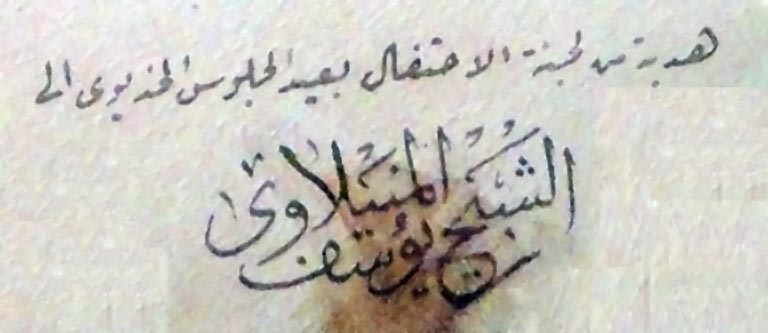 هدية من لجنة الاحتفال بعيد الجلوس الخديوى الى
الشيخ يوسف المنيلاوى